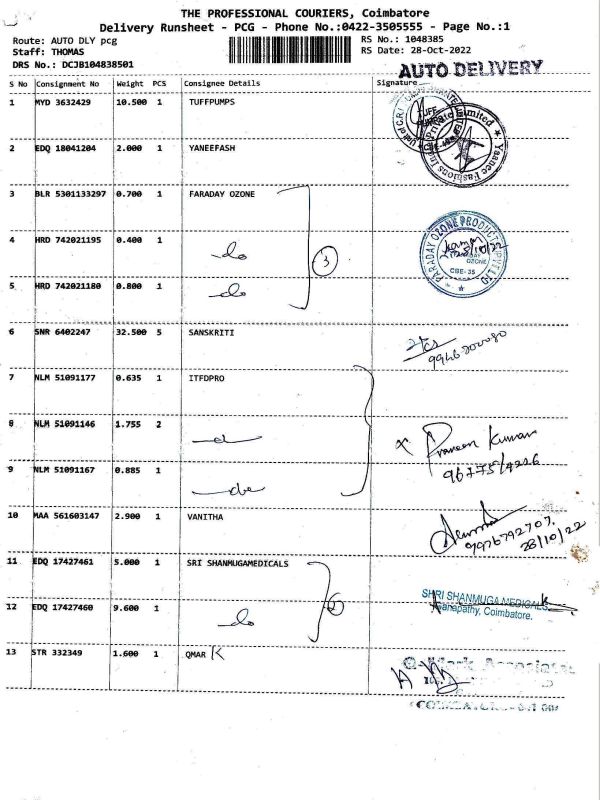 THE PROFESSIONAL COURIERS, Coimbatore
Delivery Runsheet - PCG - Phone No.:0422-3505555 - Page No.:1
Route: AUTO DLY pcg RS No.: 1048385
Staff: THOMAS RS Date: 28-Oct-2022
DRS No.: DCJB104838501
AUTO DELIVERY
S No Consignment No Weight PCS Consignee Details Signature
1 MYD 3632429 10.500 1 TUFFPUMPS
2 EDQ 18041204 2.000 1 YANEEFASH
3 BLR 5301133297 0.700 1 FARADAY OZONE
FARADAY OZONE PRODUCTS PVT LTD
4 HRD 742021195 0.400 1 -do 3
CBE-35
5 HRD 742021180 0.800 1 do
6 SNR 6402247 32.500 5 SANSKRITI
7 NLM 51091177 0.635 1 ITFDPRO
8 NLM 51091146 1.755 2
x Praveen Kumar
9 NLM 51091167 0.885 1 do
10 MAA 561603147 2.900 1 VANITHA
9976792707,
28/10/22
11 EDQ 17427461 5.000 1 SRI SHANMUGAMEDICALS
SHRI SHANMUGA MEDICALS
12 EDQ 17427460 9.600 1 do 2
Ganapathy, Coimbatore.
13 STR 332349 1.600 1 QMAR K
Q-Mark Associates